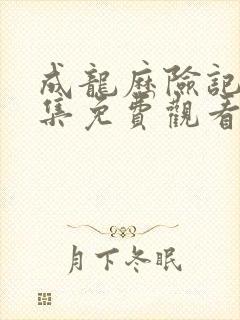 成龍歷險記
集免費觀看
月下冬眠